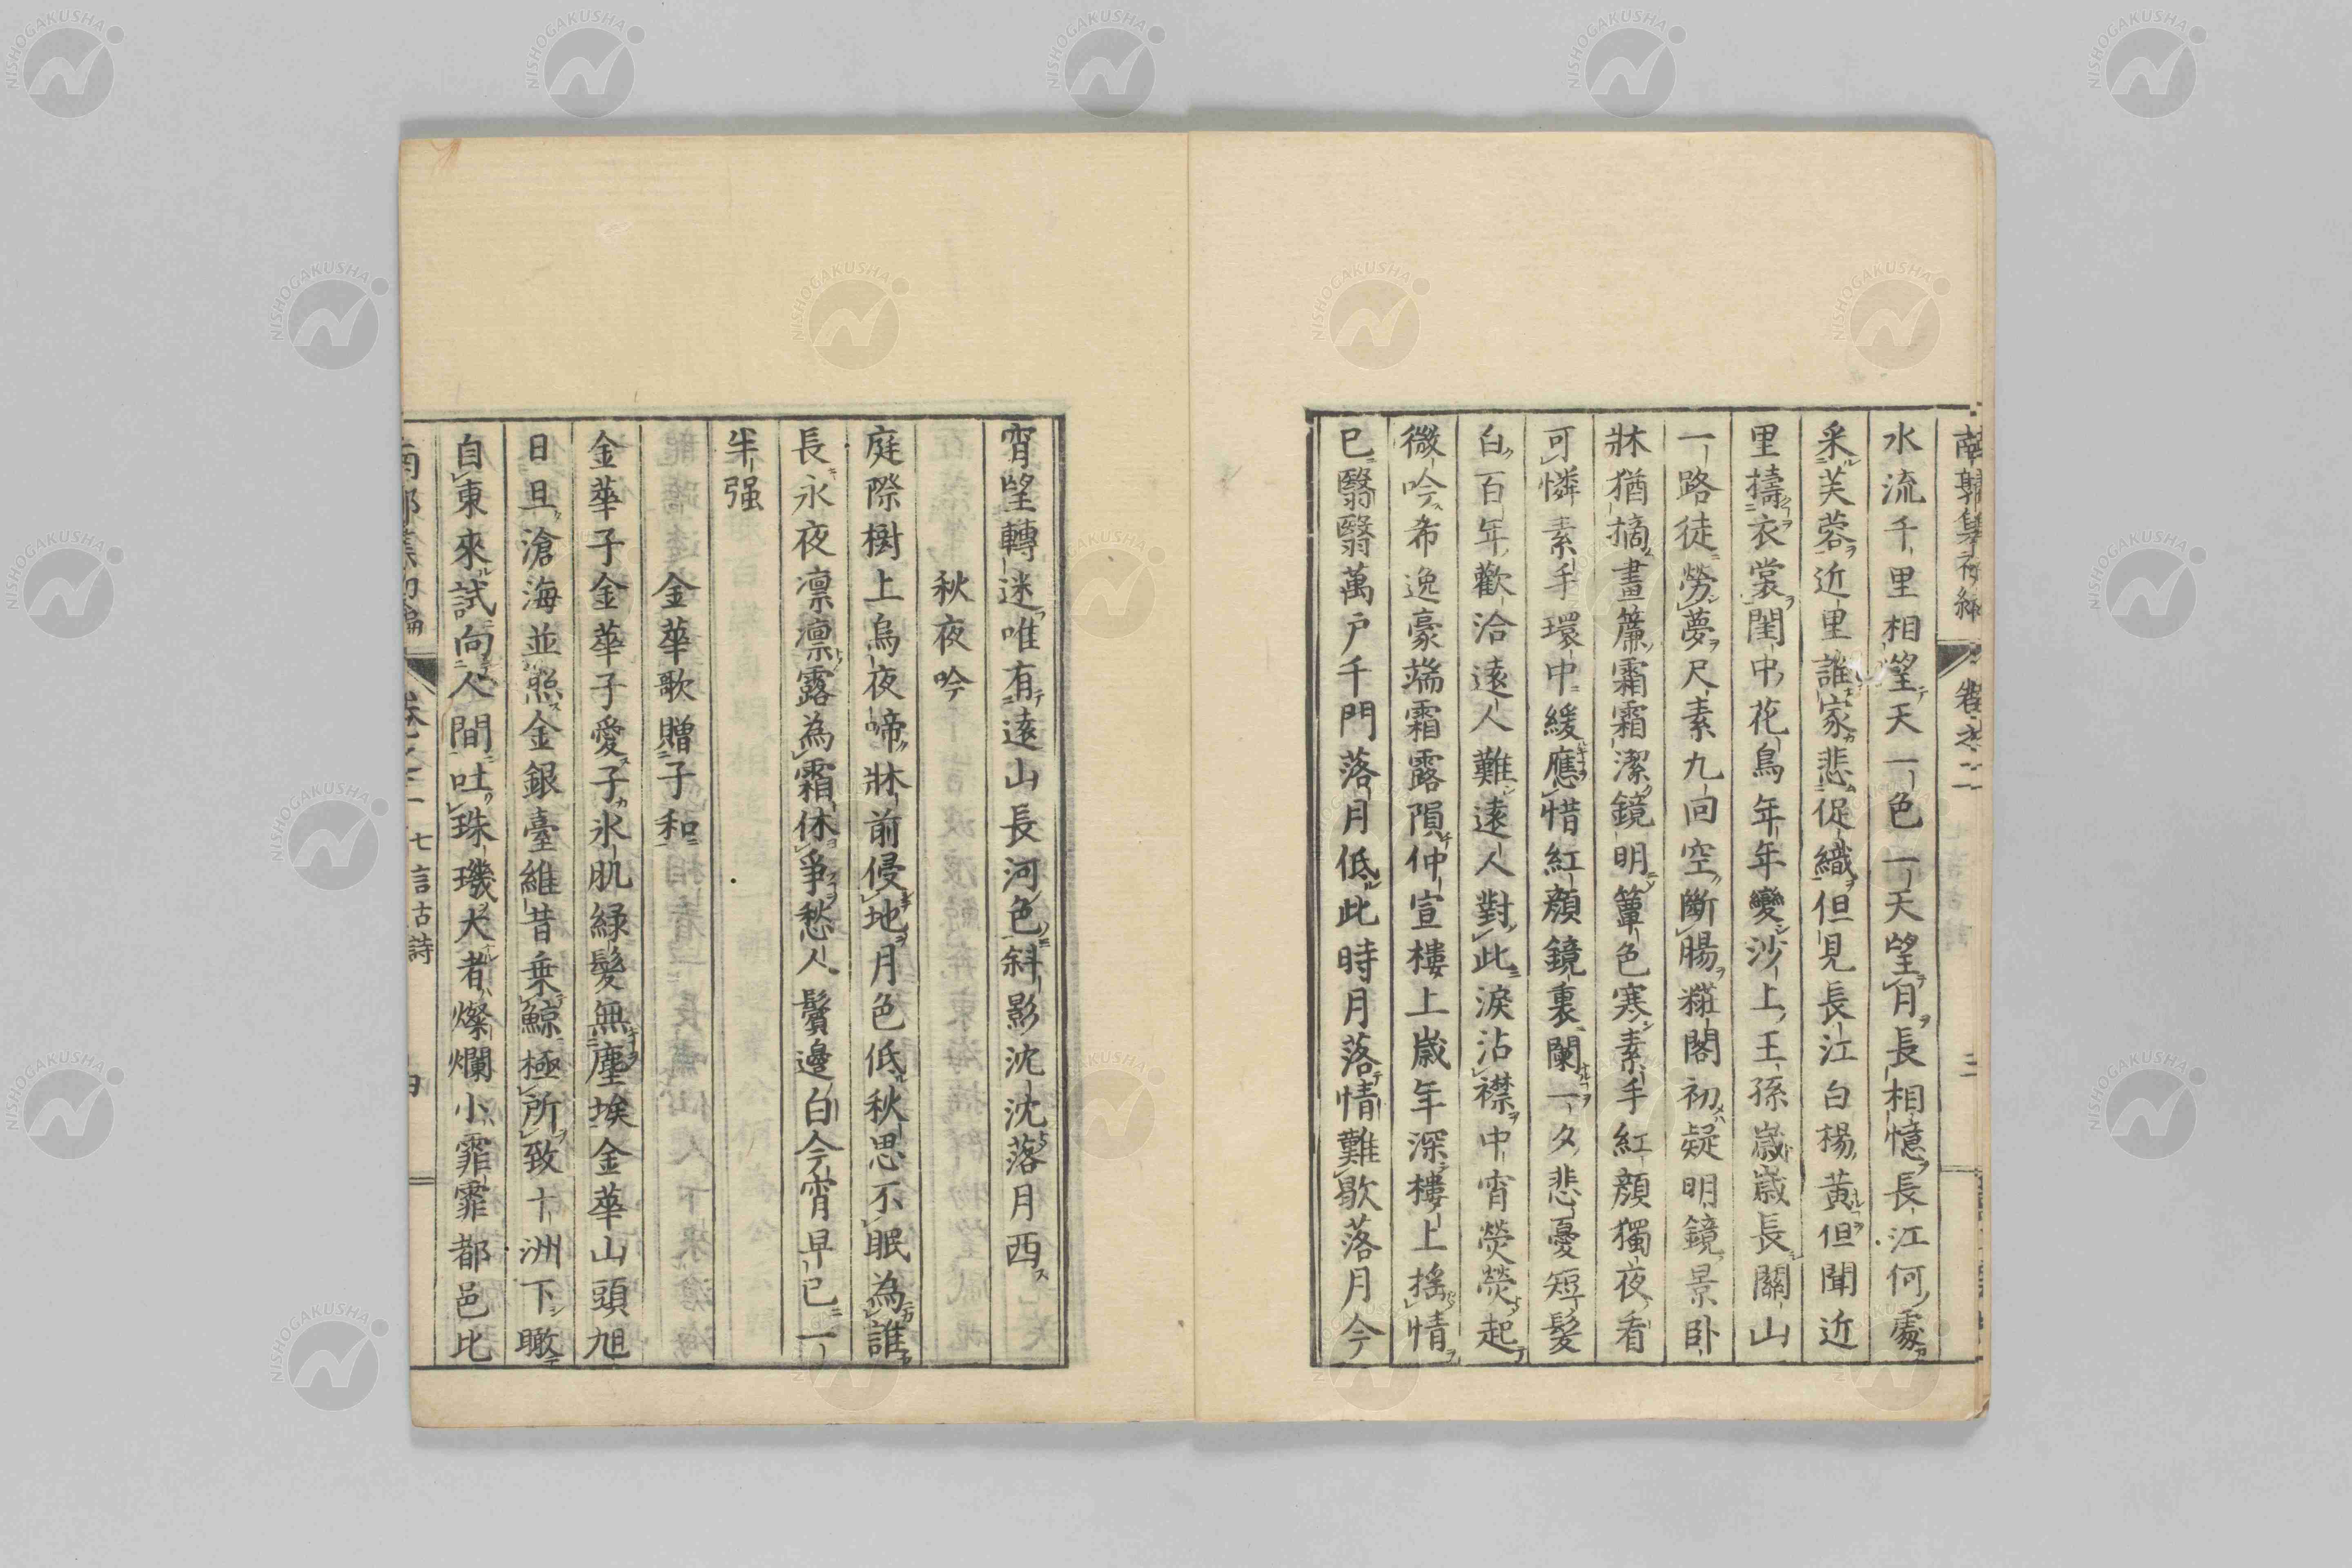 水流千里相望天一色一天望月長相憶長江何處
采芙蓉近里誰家悲促織但見長江白楊黃但聞近
里擣衣裳閨中花鳥年年變沙上王孫歲歲長關山
一路徒勞夢尺素九回空斷腸糚閣初疑明鏡景卧
牀猶摘畫簾霜霜潔鏡明簟色寒素手紅顏獨夜看
可憐素手環中緩應惜紅顏鏡裏闌一夕悲憂短髮
白百年歡洽遠人難遠人對此淚沾襟中宵熒熒起
微吟希逸豪端霜露隕仲宣樓上歲年深樓上搖情
已翳翳萬戶千門落月低此時月落情難歇落月今
宵望轉迷唯有遠山長河色斜影沈沈落月西
秋夜吟
庭際樹上烏夜啼牀前侵地月色低秋思不眠為誰
長永夜凛凛露為霜休爭愁人鬢邊白今宵早已一
半强
金華歌贈子和
金華子金華子愛子氷肌緑髮無塵埃金華山頭旭
日旦滄海並照金銀臺維昔乗鯨極所致十洲下瞰
自東來試向人間吐珠璣大者燦爛小霏霏都邑比
卷之二 七言古詩
NISHOGAKUSHA